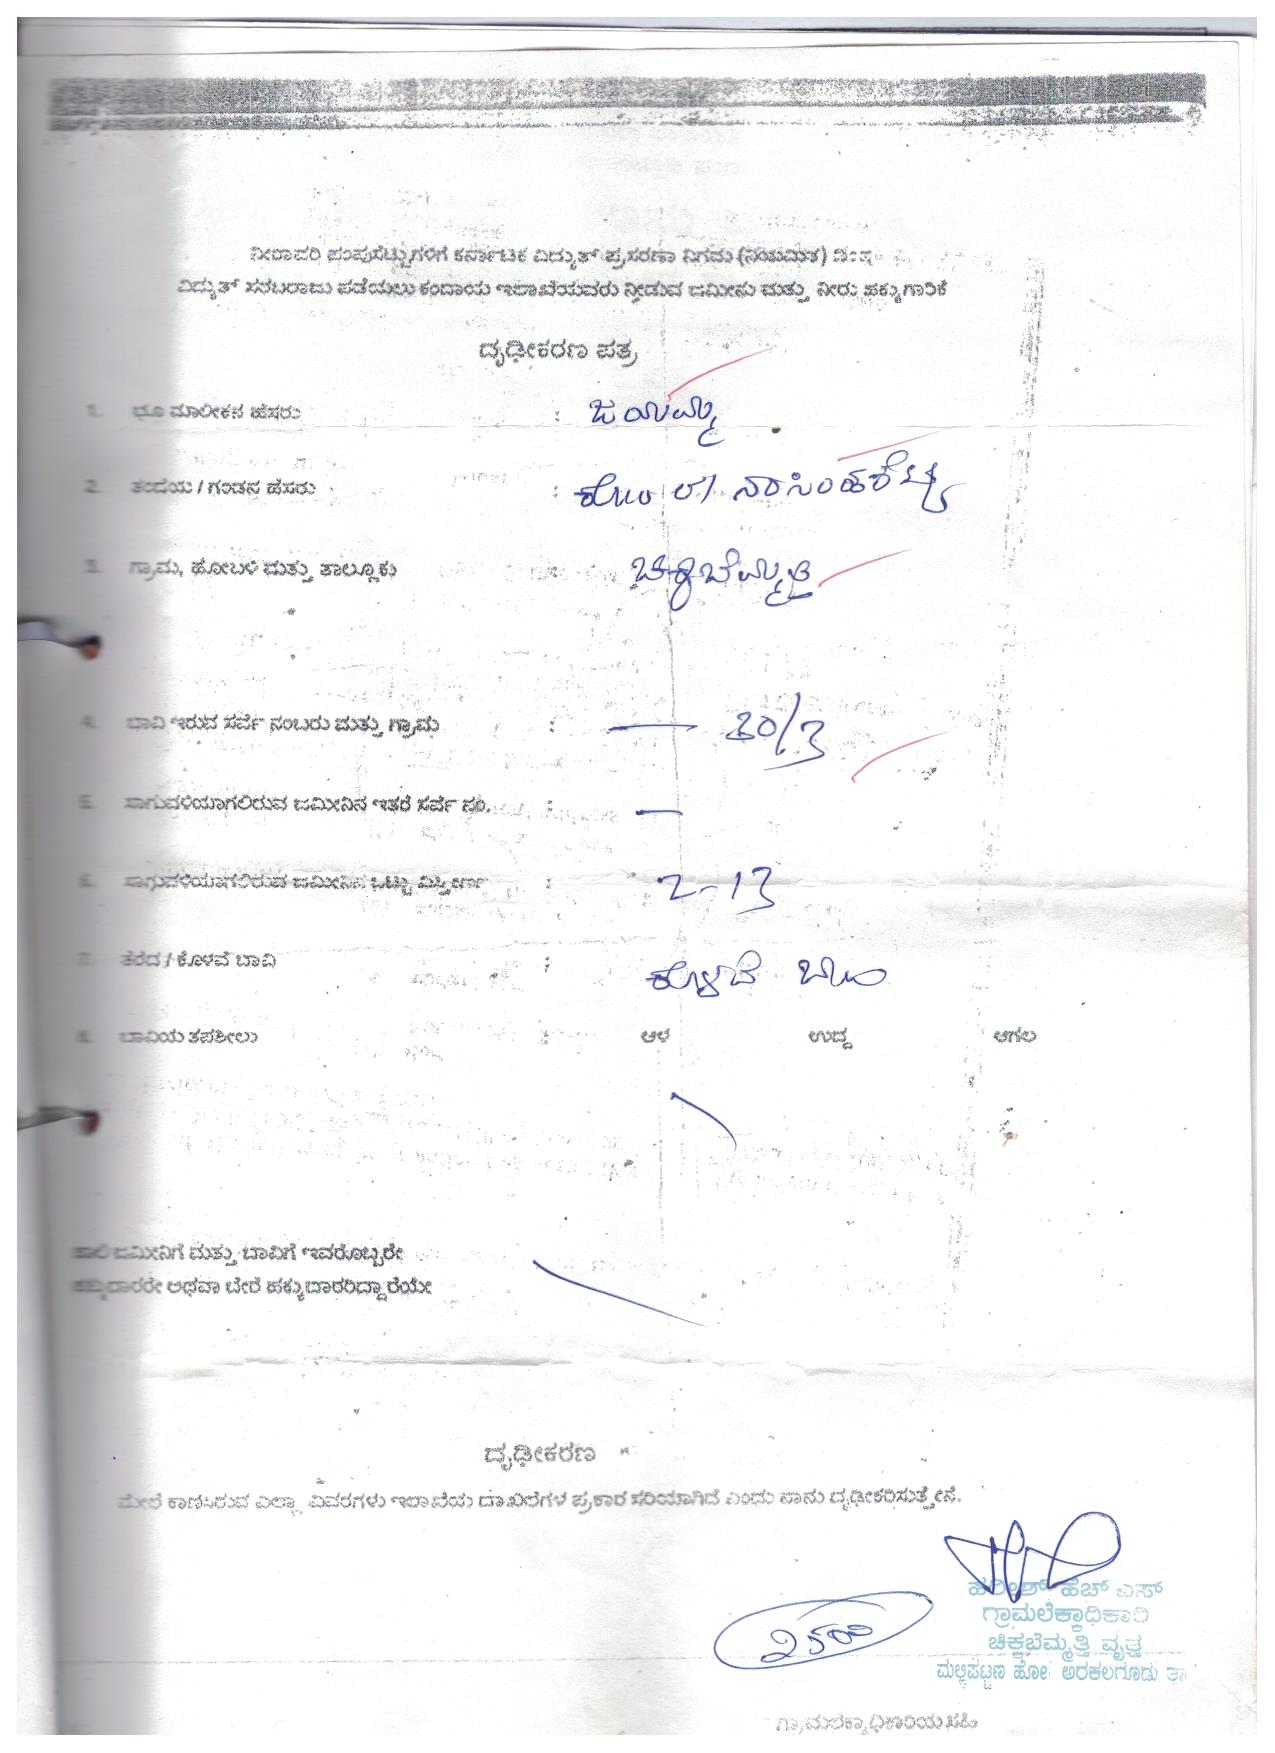 ನೀರಾವರಿ ಪಂಪುಸೆಟ್ಟುಗಳಿಗೆ ಕರ್ನಾಟಕ ವಿದ್ಯುತ್ ಪ್ರಸರಣಾ ನಿಗಮ (ನಿಯಮಿತ)
ವಿದ್ಯುತ್ ಸರಬರಾಜು ಪಡೆಯಲು ಕಂದಾಯ ಇಲಾಖೆಯವರು ನೀಡುವ ಜಮೀನು ಮತ್ತು ನೀರು ಹಕ್ಕುಗಾರಿಕೆ
ದೃಢೀಕರಣ ಪತ್ರ
1. ಭೂ ಮಾಲೀಕನ ಹೆಸರು : ಜಯಮ್ಮ
2. ತಂದೆಯ / ಗಂಡನ ಹೆಸರು :
3. ಗ್ರಾಮ, ಹೋಬಳಿ ಮತ್ತು ತಾಲ್ಲೂಕು : ಚಿಕ್ಕಬೆಮ್ಮತ್ತಿ
4. ಬಾವಿ ಇರುವ ಸರ್ವೆ ನಂಬರು ಮತ್ತು ಗ್ರಾಮ : — 30/3
5. ಸಾಗುವಳಿಯಾಗಲಿರುವ ಜಮೀನಿನ ಇತರೆ ಸರ್ವೆ ನಂ. : —
6. ಸಾಗುವಳಿಯಾಗಲಿರುವ ಜಮೀನಿನ ಒಟ್ಟು ವಿಸ್ತೀರ್ಣ : 2-13
7. ತೆರೆದ / ಕೊಳವೆ ಬಾವಿ : ಕೊಳವೆ ಬಾವಿ
8. ಬಾವಿಯ ತಪಶೀಲು : ಆಳ ಉದ್ದ ಅಗಲ
ಹಾಲಿ ಜಮೀನಿಗೆ ಮತ್ತು ಬಾವಿಗೆ ಇವರೊಬ್ಬರೇ
ಹಕ್ಕುದಾರರೇ ಅಥವಾ ಬೇರೆ ಹಕ್ಕುದಾರರಿದ್ದಾರೆಯೇ
ದೃಢೀಕರಣ
ಮೇಲೆ ಕಾಣಿಸಿರುವ ಎಲ್ಲಾ ವಿವರಗಳು ಇಲಾಖೆಯ ದಾಖಲೆಗಳ ಪ್ರಕಾರ ಸರಿಯಾಗಿದೆ ಎಂದು ನಾನು ದೃಢೀಕರಿಸುತ್ತೇನೆ.
ಹರೀಶ್ ಹೆಚ್ ಎಸ್
ಗ್ರಾಮಲೆಕ್ಕಾಧಿಕಾರಿ
ಚಿಕ್ಕಬೆಮ್ಮತ್ತಿ ವೃತ್ತ
ಮಲ್ಲಿಪಟ್ಟಣ ಹೋ ಅರಕಲಗೂಡು ತಾ
ಗ್ರಾಮಲೆಕ್ಕಾಧಿಕಾರಿಯ ಸಹಿ